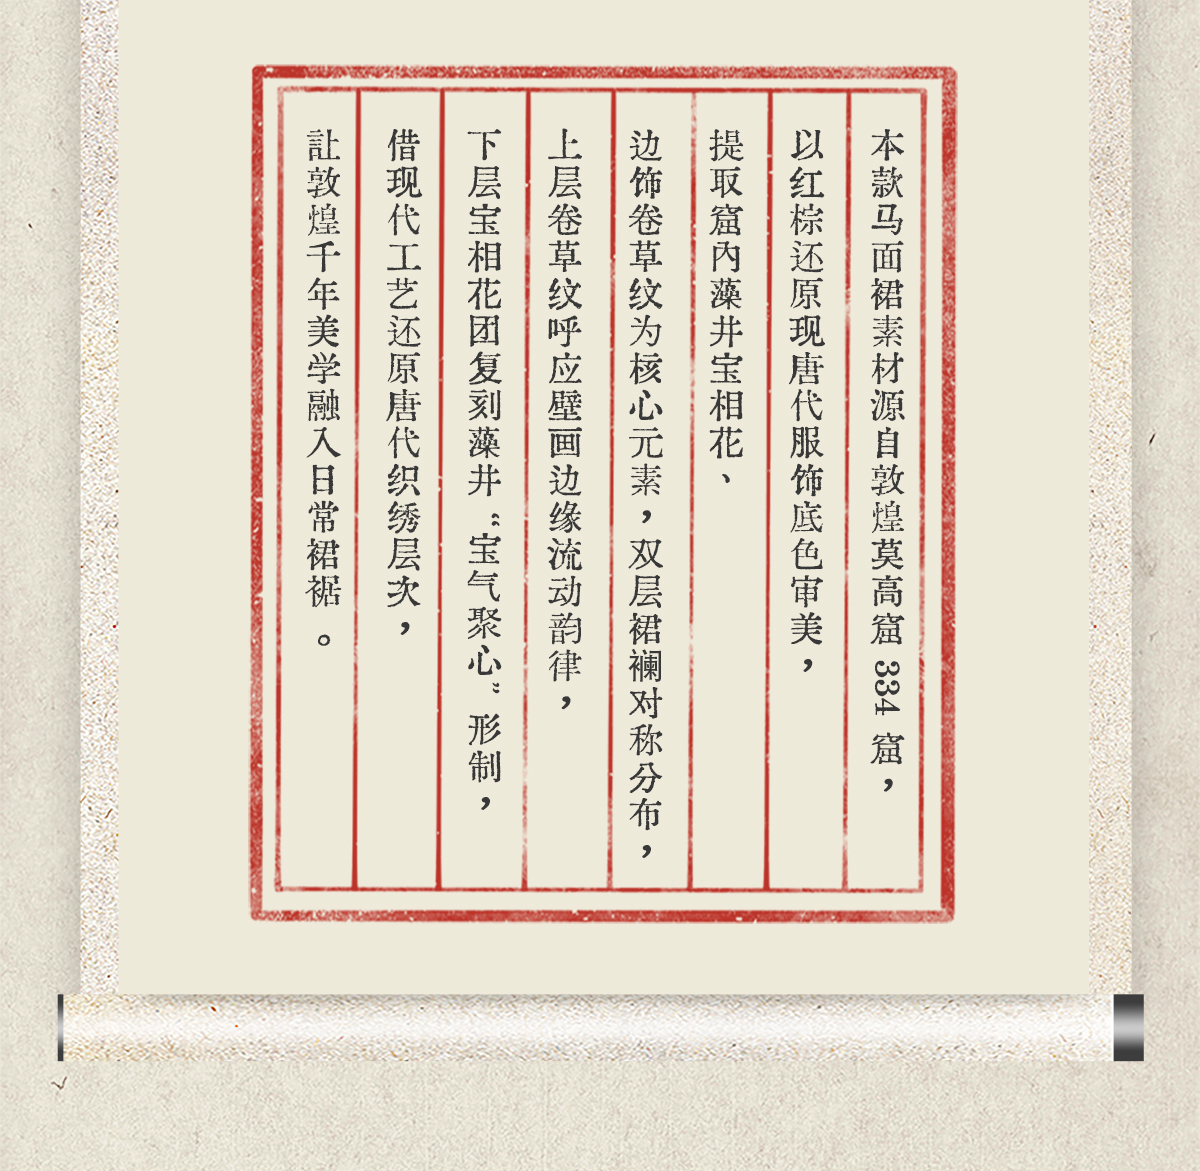 本款马面裙素材源自敦煌莫高窟 334 窟，
以红棕还原现唐代服饰底色审美，
提取窟内藻井宝相花、
边饰卷草纹为核心元素，双层裙襕对称分布，
上层卷草纹呼应壁画边缘流动韵律，
下层宝相花团复刻藻井“宝气聚心”形制，
借现代工艺还原唐代织绣层次，
訨敦煌千年美学融入日常裙裾。